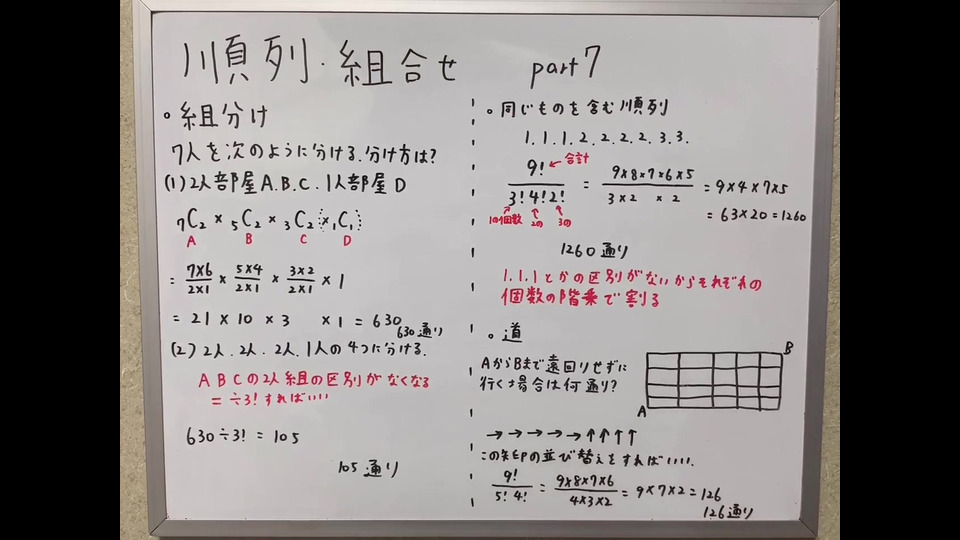 順列・組合せ part7
。組分け
7人を次のように分ける.分け方は?
(1) 2人部屋A.B.C.1人部屋D
₇C₂ × ₅C₂ × ₃C₂ × ₁C₁
A B C D
= 7×6/2×1 × 5×4/2×1 × 3×2/2×1 × 1
= 21 × 10 × 3 × 1 = 630
630通り
(2) 2人.2人.2人.1人の4つに分ける.
ABCの2人組の区別がなくなる
= ÷3!すればいい
630÷3! = 105
105通り
。同じものを含む順列
1.1.1.2.2.2.2.3.3.
9!/3!4!2! = 9×8×7×6×5/3×2×2 = 9×4×7×5
合計
= 63×20=1260
1の個数 2の 3の
1260通り
1.1.1とかの区別がないからそれぞれの
個数の階乗で割る
。道
AからBまで遠回りせずに
行く場合は何通り?
B
A
→→→→→↑↑↑↑
この矢印の並び替えをすればいい.
9!/5!4! = 9×8×7×6/4×3×2 = 9×7×2=126
126通り